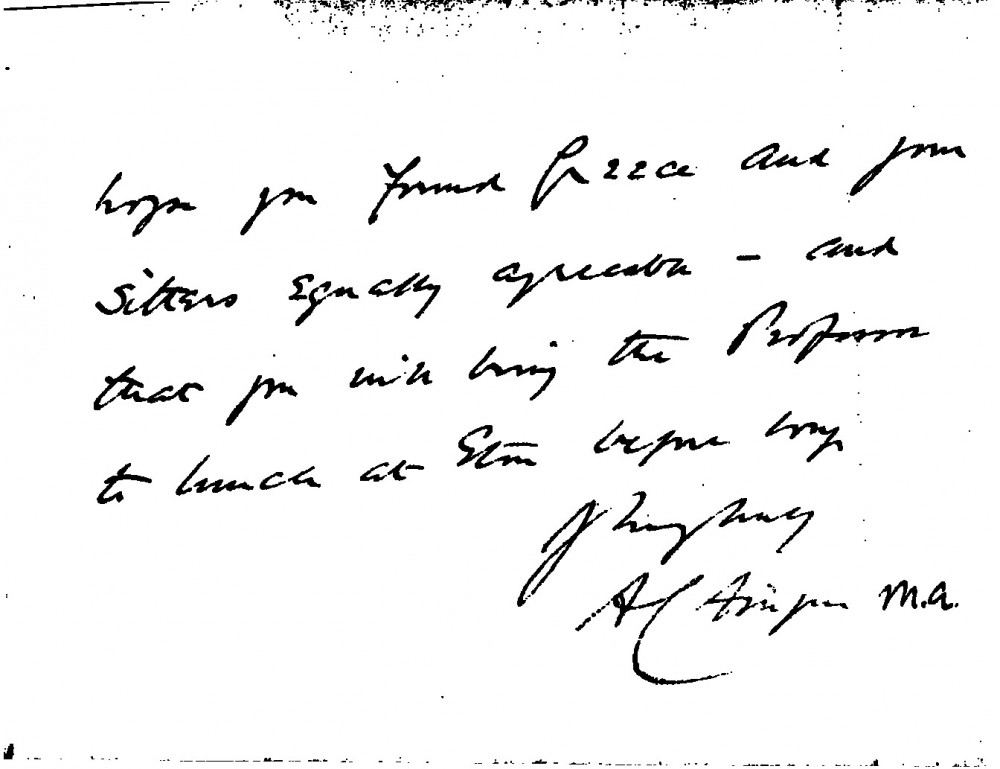 hope you found Greece and your
sitters equally agreeable – and
that you will bring the Professor
to lunch at Eton before long.
A C M.A.